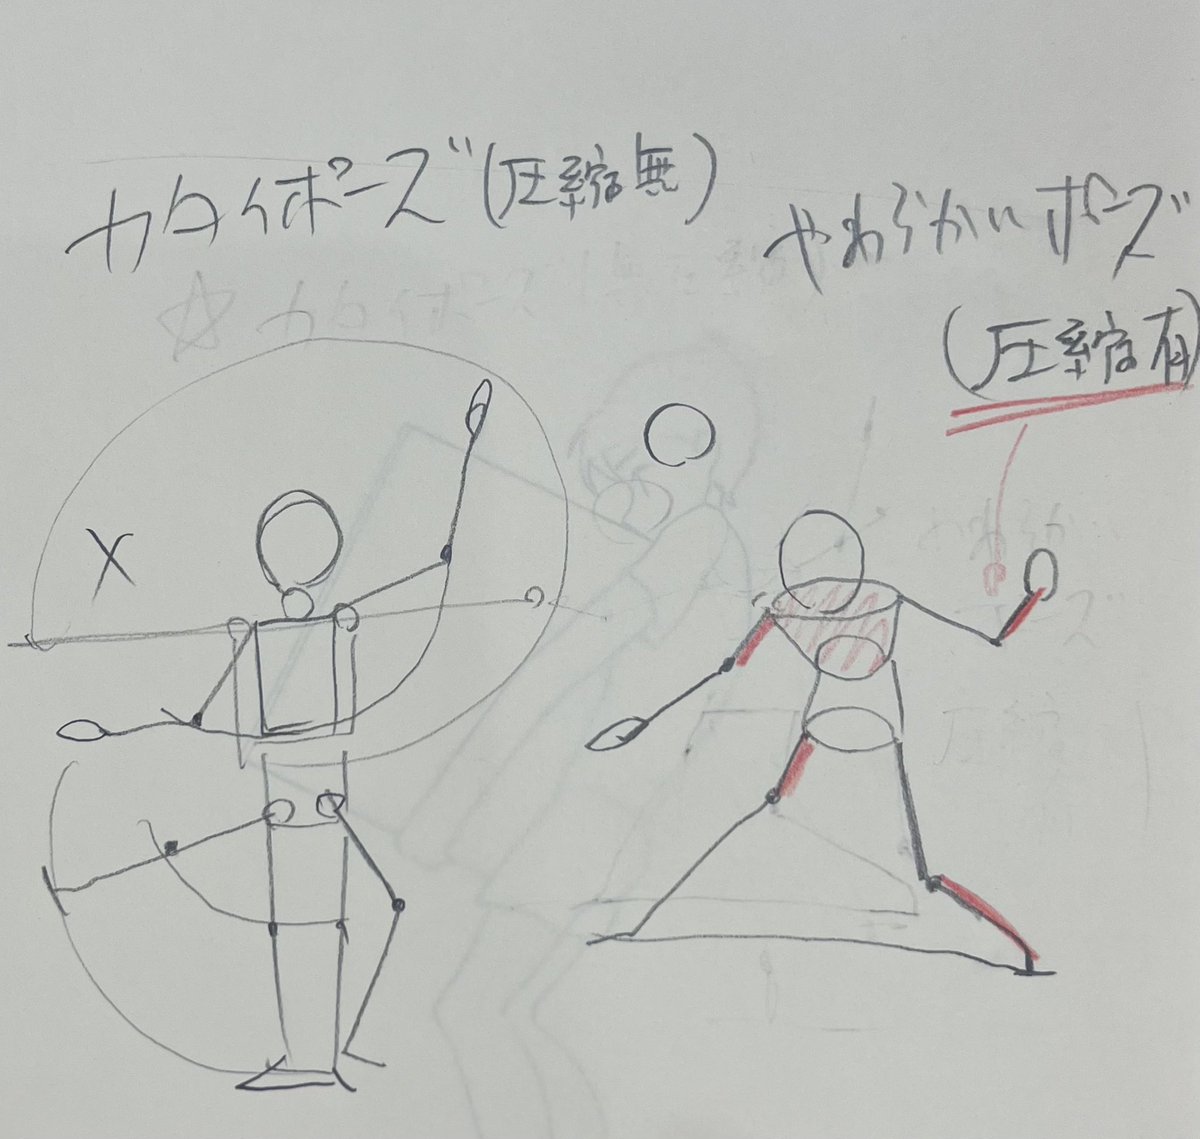 カタイポーズ(圧縮無)
やわらかいポーズ
(圧縮有)
X